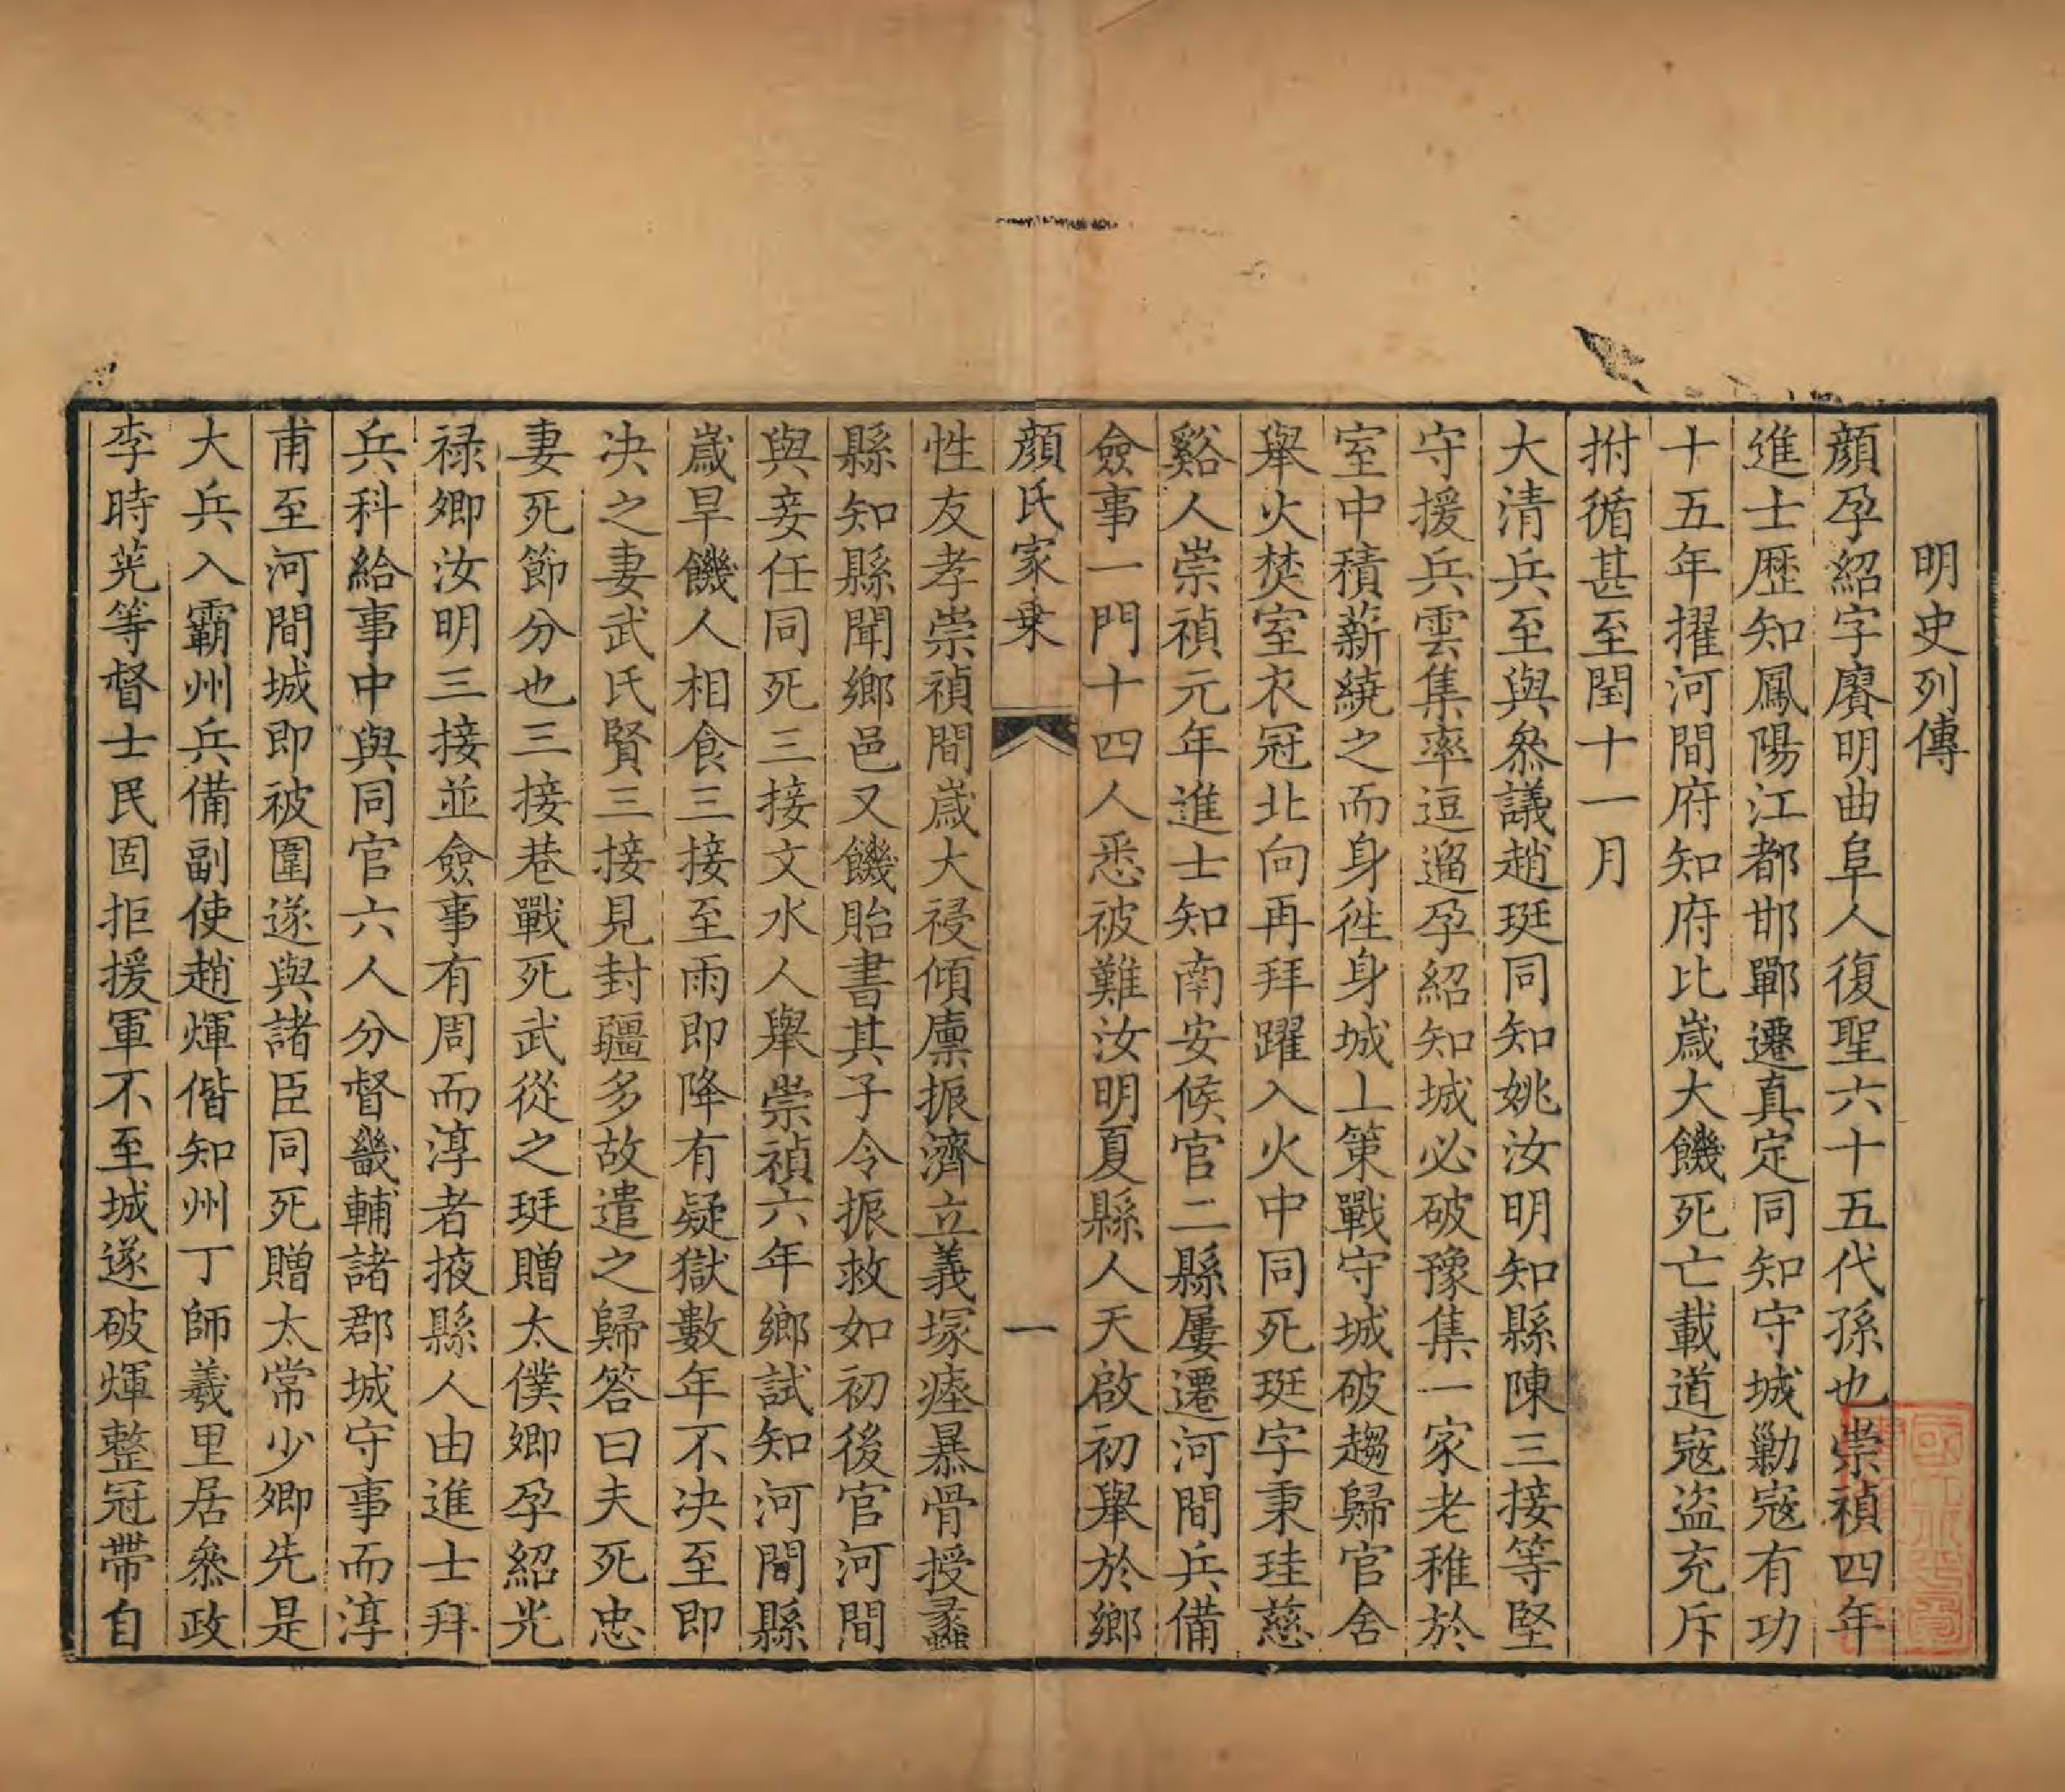 明史列傳
顏孕紹字賡明曲阜人復聖六十五代孫也崇禎四年
進士歷知鳳陽江都邯鄲遷真定同知守城勦寇有功
十五年擢河間府知府比歲大饑死亡載道寇盜充斥
拊循甚至閏十一月
大清兵至與叅議趙珽同知姚汝明知縣陳三接等堅
守援兵雲集率逗遛孕紹知城必破豫集一家老稚於
室中積薪繞之而身徃身城上策戰守城破趨歸官舍
舉火焚室衣冠北向再拜躍入火中同死珽字秉珪慈
谿人崇禎元年進士知南安候官二縣屢遷河間兵備
僉事一門十四人悉被難汝明夏縣人天啟初舉於鄉
顏氏家乗
一
性友孝崇禎間歲大祲傾廩振濟立義塚瘞暴骨授蠡
縣知縣聞鄉邑又饑貽書其子令振救如初後官河間
與妾任同死三接文水人舉崇禎六年鄉試知河間縣
歲旱饑人相食三接至雨即降有疑獄數年不决至即
决之妻武氏賢三接見封疆多故遣之歸答曰夫死忠
妻死節分也三接巷戰死武從之珽贈太僕卿孕紹光
祿卿汝明三接並僉事有周而淳者掖縣人由進士拜
兵科給事中與同官六人分督畿輔諸郡城守事而淳
甫至河間城即被圍遂與諸臣同死贈太常少卿先是
大兵入霸州兵備副使趙煇偕知州丁師羲里居叅政
李時茪等督士民固拒援軍不至城遂破煇整冠帶自